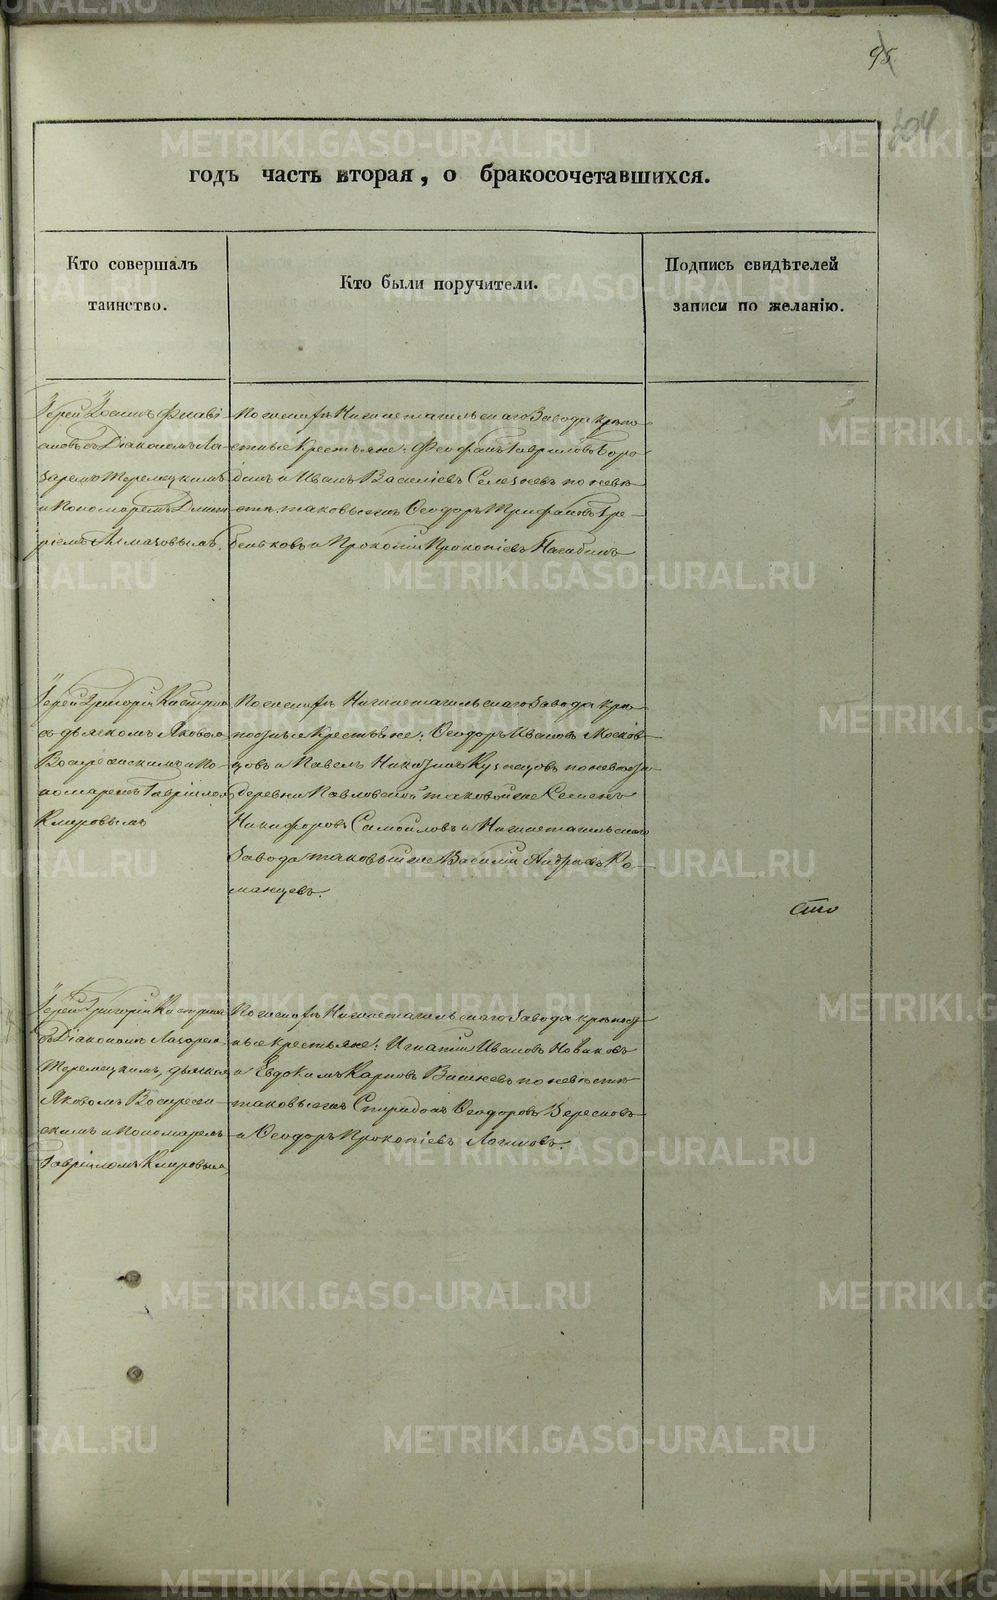 95.
годъ часть вторая, о бракосочетавшихся.
Кто совершалъ
таинство.
Кто были поручители.
Подпись свидѣтелей
записи по желанію.
Іерей Іоаннъ Флаві-
ановъ съ Діакономъ Ла-
заремъ Терлецкимъ
и Пономаремъ Дмит-
ріемъ Алмазовымъ.
По женихѣ Нижнетагильскаго Завода крѣпо-
стные Крестьяне: Феофанъ Гавриловъ Боро-
динъ и Иванъ Василіевъ Селезневъ по невѣ-
стѣ таковые жъ Ѳеодоръ Трифановъ Гре-
бенковъ и Прокопій Прокопіевъ
Іерей Григорій Кастрин
съ дьячкомъ Яковомъ
Воскресенскимъ и По-
номаремъ Гавріиломъ
Клировымъ
По женихѣ Нижнетагильскаго Завода крѣ-
постные Крестьяне: Ѳеодоръ Ивановъ Москов-
цовъ и Павелъ Никозинъ Кузнецовъ по невѣстѣ
деревни Павловской таковой же Семенъ
Никифоровъ Самойловъ и Нижнетагильскаго
Завода таковый же Василій Андреевъ Ро-
манцевъ.
Іерей Григорій Кастрин
съ Діакономъ Лазаремъ
Терлецкимъ, дьячкомъ
Яковомъ Воскресен-
скимъ и Пономаремъ
Гавріиломъ Клировымъ
По женихѣ Нижнетагильскаго Завода крѣпост-
ные крестьяне: Игнатій Ивановъ Новиковъ
и Евдокимъ Карповъ по невѣстѣ
таковые жъ Спиридонъ Ѳеодоровъ Вересковъ
и Ѳеодоръ Прокопіевъ Логиновъ.
METRIKI.GASO-URAL.RU